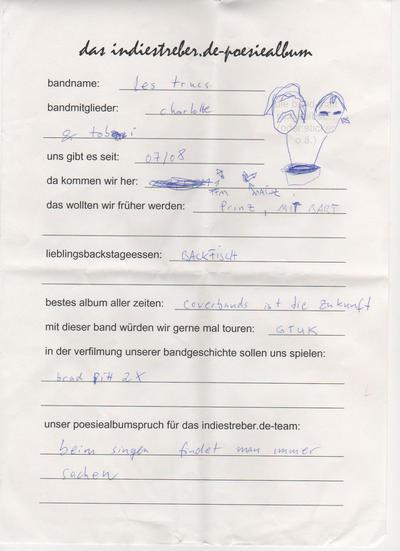 das indiestreber.de-poesiealbum
bandname: Les trucs
bandmitglieder: charlotte
& tobi
uns gibt es seit: 07/08
da kommen wir her: FFM MAINZ
das wollten wir früher werden: Prinz, MIT BART
lieblingsbackstageessen: BACKFISCH
bestes album aller zeiten: coverbands ist die Zukunft
mit dieser band würden wir gerne mal touren: GTUK
in der verfilmung unserer bandgeschichte sollen uns spielen:
brad Pitt 2X
unser poesiealbumspruch für das indiestreber.de-team:
beim singen findet man immer
sachen